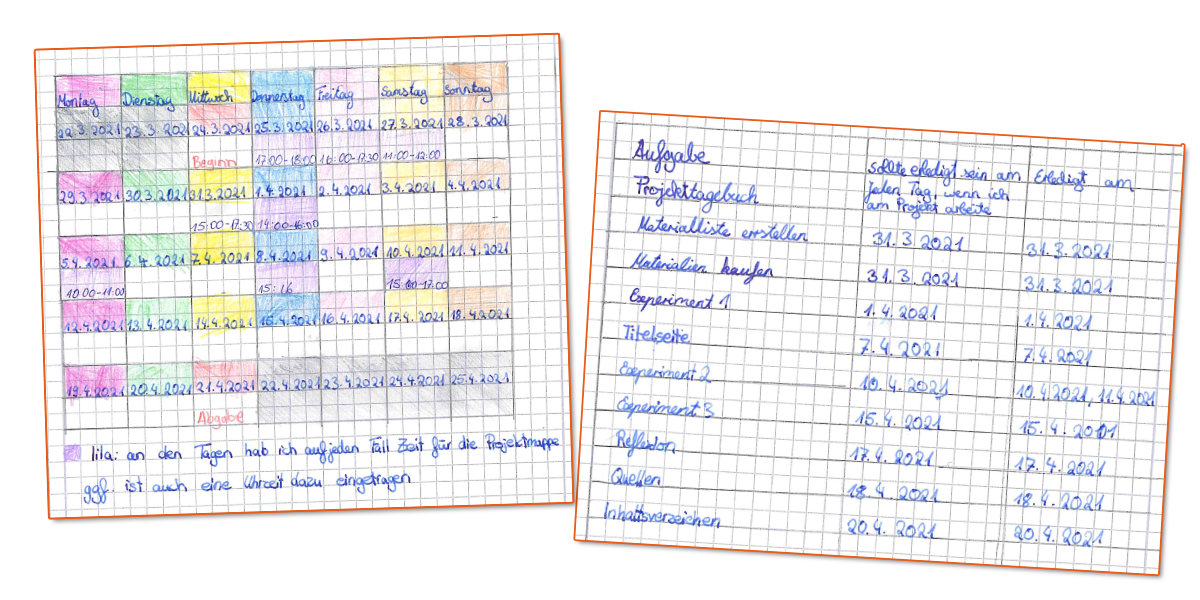 Montag Dienstag Mittwoch Donnerstag Freitag Samstag Sonntag
22.3.2021 23.3.2021 24.3.2021 25.3.2021 26.3.2021 27.3.2021 28.3.2021
Beginn 17:00-18:00 16:00-17:30 11:00-12:00
29.3.2021 30.3.2021 31.3.2021 1.4.2021 2.4.2021 3.4.2021 4.4.2021
15:00-17:30 14:00-16:00
5.4.2021 6.4.2021 7.4.2021 8.4.2021 9.4.2021 10.4.2021 11.4.2021
10:00-11:00 15:16 15:00-17:00
12.4.2021 13.4.2021 14.4.2021 15.4.2021 16.4.2021 17.4.2021 18.4.2021
19.4.2021 20.4.2021 21.4.2021 22.4.2021 23.4.2021 24.4.2021 25.4.2021
Abgabe
lila: an den Tagen hab ich auf jeden Fall Zeit für die Projektmappe
ggf. ist auch eine Uhrzeit dazu eingetragen
Aufgabe sollte erledigt sein am Erledigt am
Projekttagebuch jeden Tag, wenn ich
am Projekt arbeite
Materialliste erstellen 31.3.2021 31.3.2021
Materialien kaufen 31.3.2021 31.3.2021
Experiment 1 1.4.2021 1.4.2021
Titelseite 7.4.2021 7.4.2021
Experiment 2 10.4.2021 10.4.2021, 11.4.2021
Experiment 3 15.4.2021 15.4.2001
Reflexion 17.4.2021 17.4.2021
Quellen 18.4.2021 18.4.2021
Inhaltsverzeichen 20.4.2021 20.4.2021